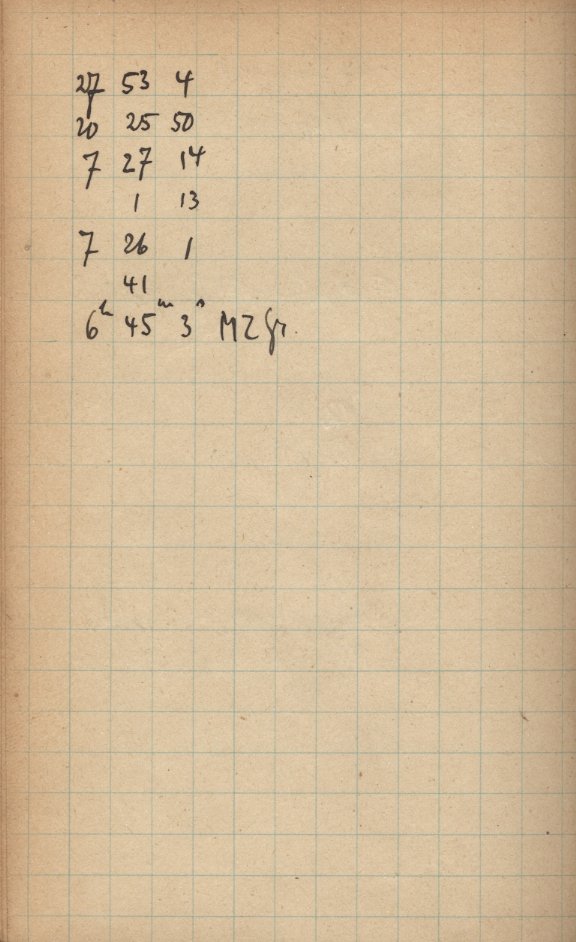 27 53 4
20 25 50
7 27 14
1 13
7 26 1
41
6h 45m 3s MZ Gr.